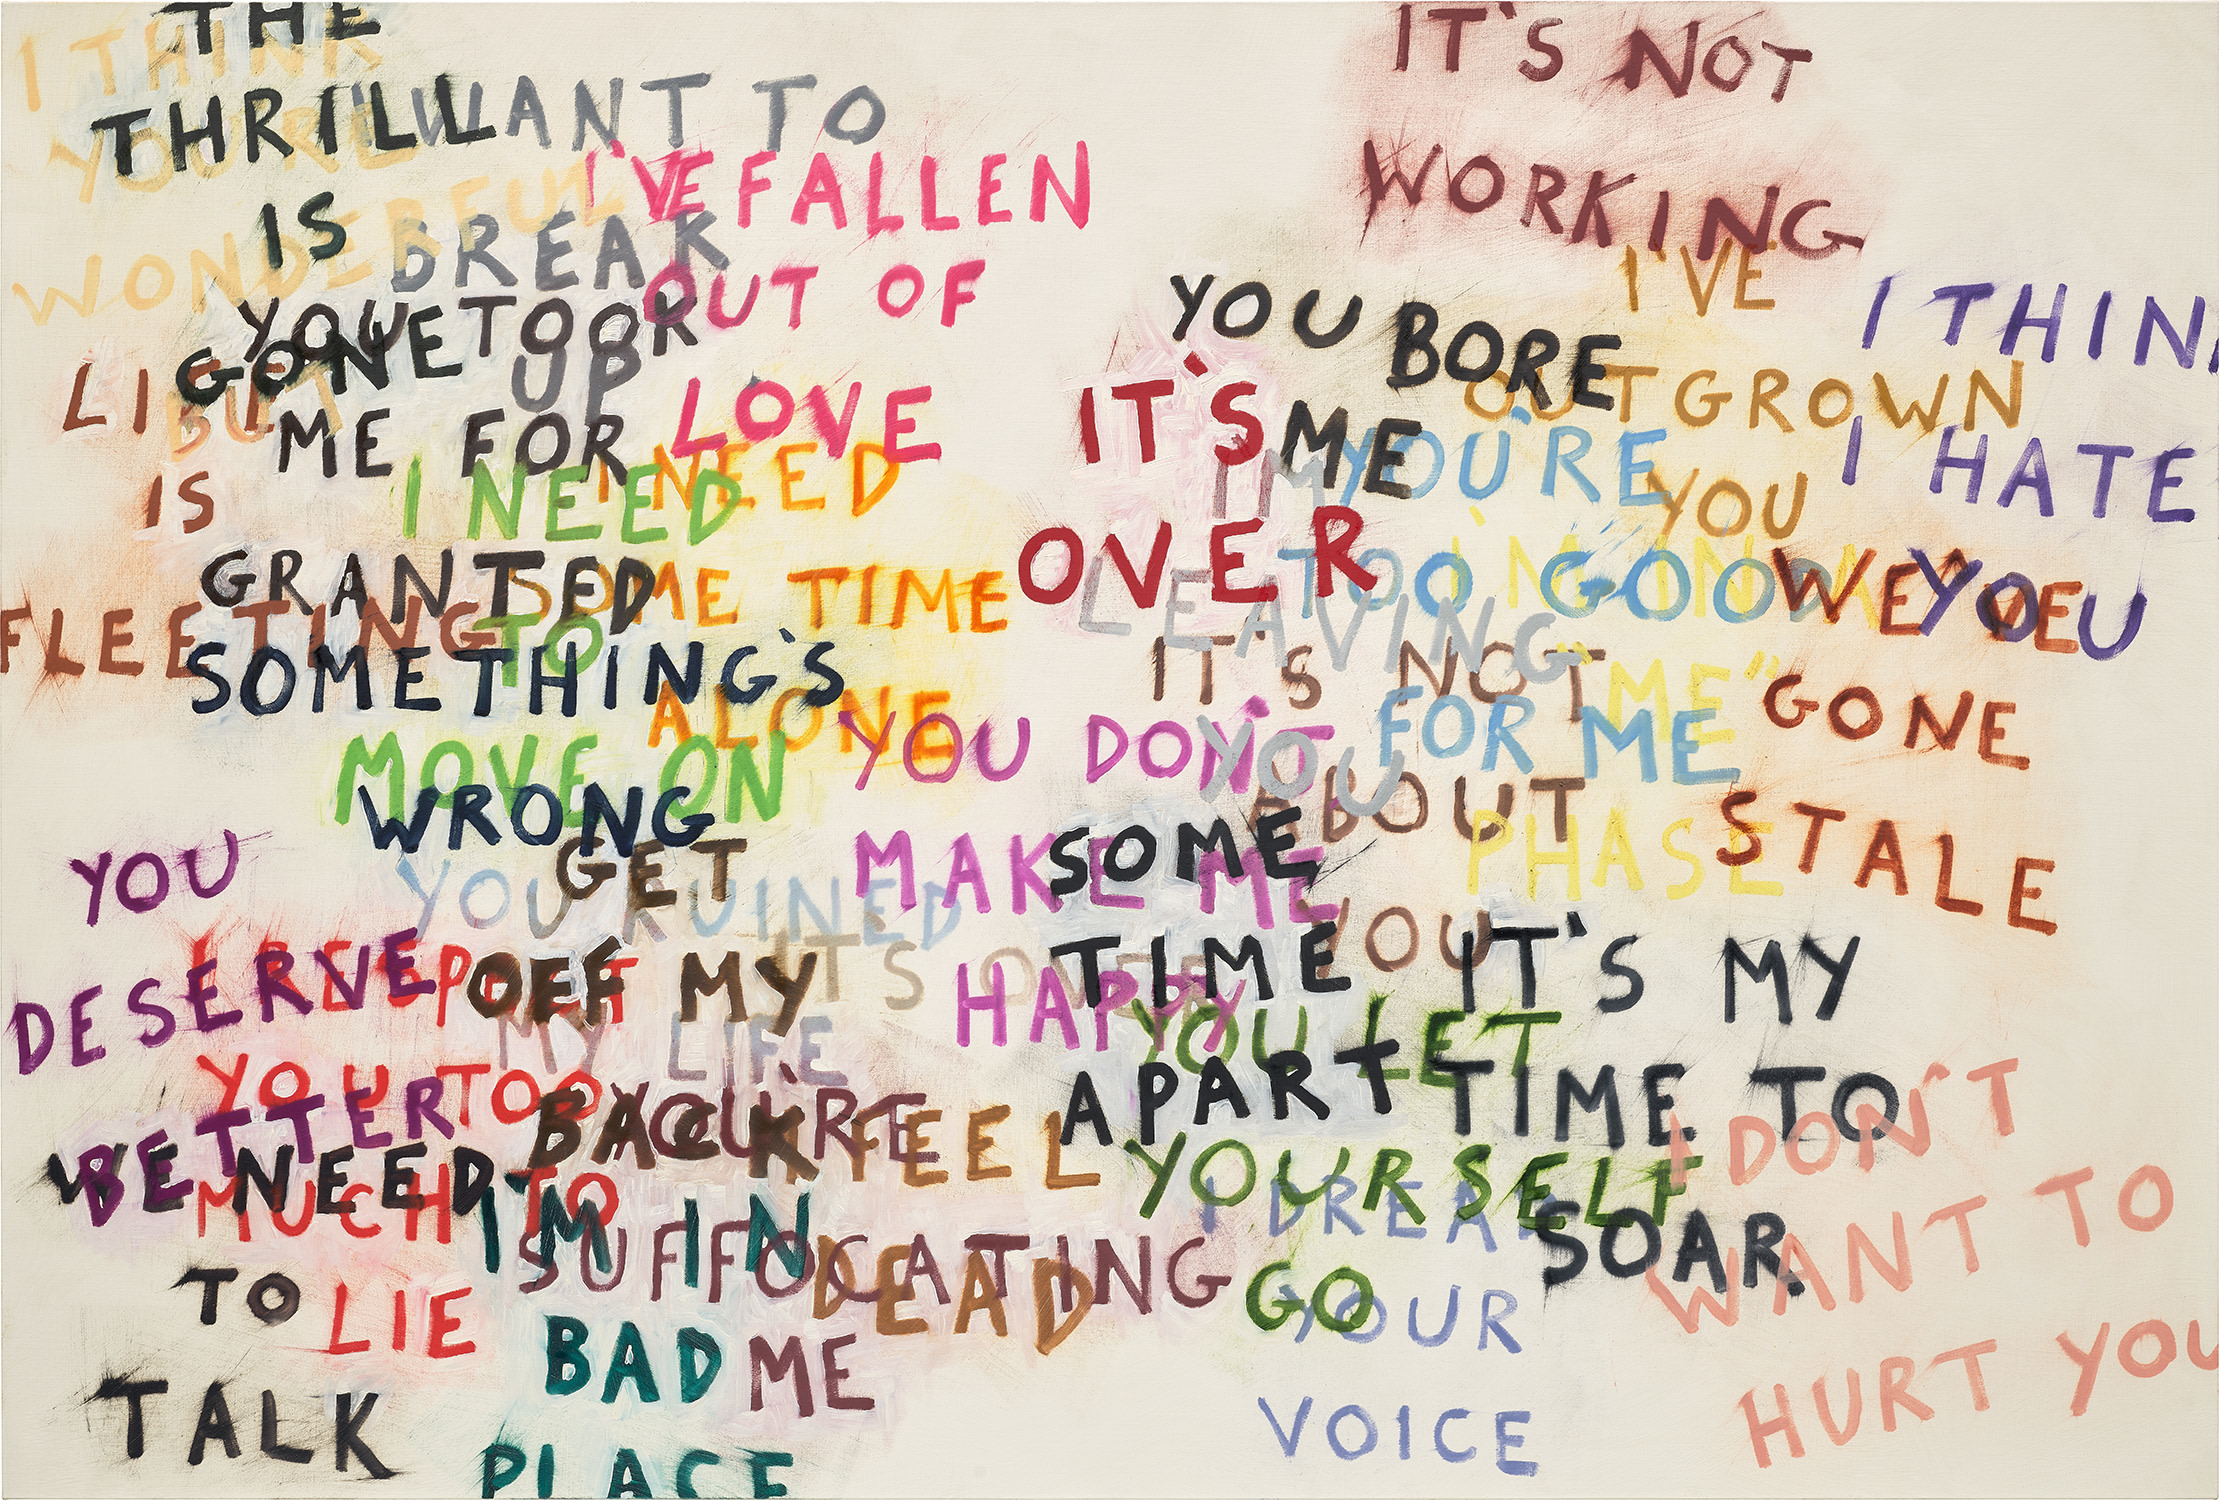 THE
THRILL
IS
GONE
I THINK
YOU'RE
WONDERFUL
BUT
I WANT TO
BREAK
UP
I'VE FALLEN
OUT OF
LOVE
IT'S NOT
WORKING
YOU TOOK
ME FOR
GRANTED
IS
FLEETING
I NEED
TO
MOVE ON
I NEED
SOME TIME
ALONE
SOMETHING'S
WRONG
YOU BORE
ME
IT'S
OVER
I'VE
OUTGROWN
YOU
I HATE
YOU
YOU'RE
TOO GOOD
FOR ME
I'M IN
"ME"
PHASE
WE'VE
GONE
STALE
LEAVING
YOU
IT'S NOT
ABOUT
YOU
YOU DON'T
MAKE ME
HAPPY
SOME
TIME
APART
YOU
DESERVE
BETTER
GET
OFF MY
BACK
YOU RUINED
MY LIFE
IT'S OVER
YOU TOO
MUCH TO
LIE
WE NEED
TO
TALK
YOU'RE
SUFFOCATING
ME
I FEEL
DEAD
I'M IN
BAD
PLACE
IT'S MY
TIME TO
SOAR.
YOU LET
YOURSELF
GO
YOUR
VOICE
I DON'T
WANT TO
HURT YOU